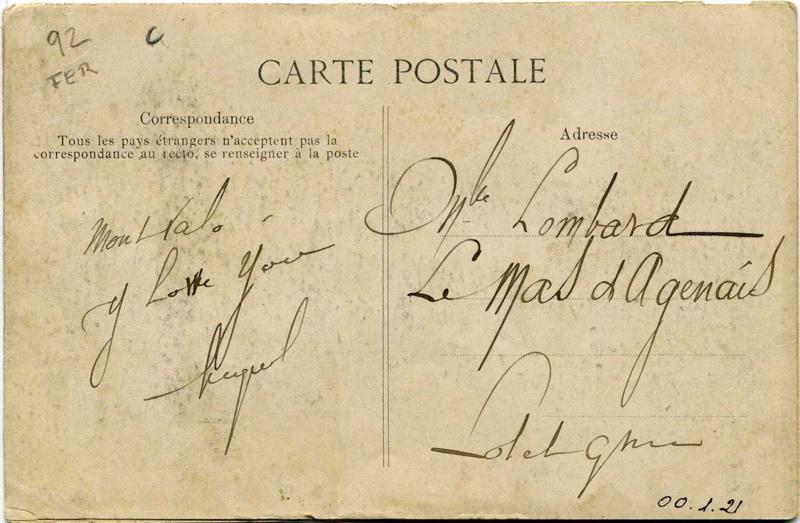 92
FER
C
CARTE POSTALE
Correspondance
Tous les pays étrangers n'acceptent pas la
correspondance au recto, se renseigner à la poste
Y Love You
Adresse
Mlle Lombard
Le Mas d'Agenais
Lot et Gne
00.1.21